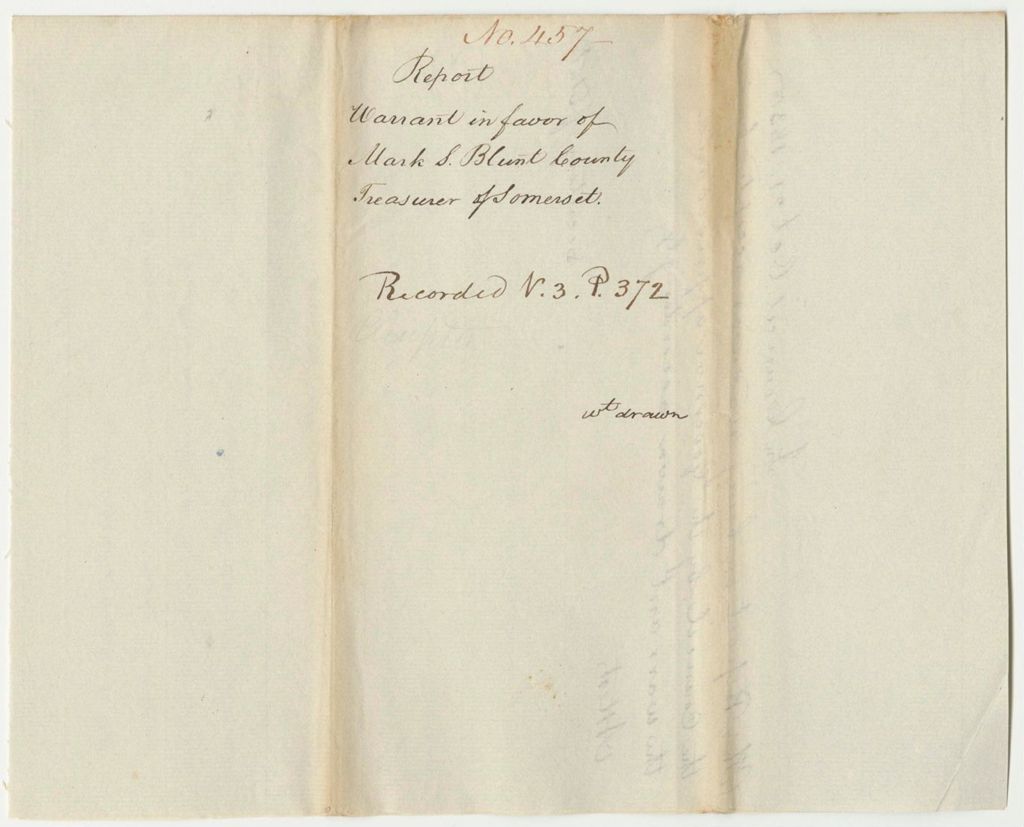 No. 457
Report
Warrant in favor of
Mark S. Blunt County
Treasurer of Somerset.
Recorded V. 3. P. 372
wt drawn